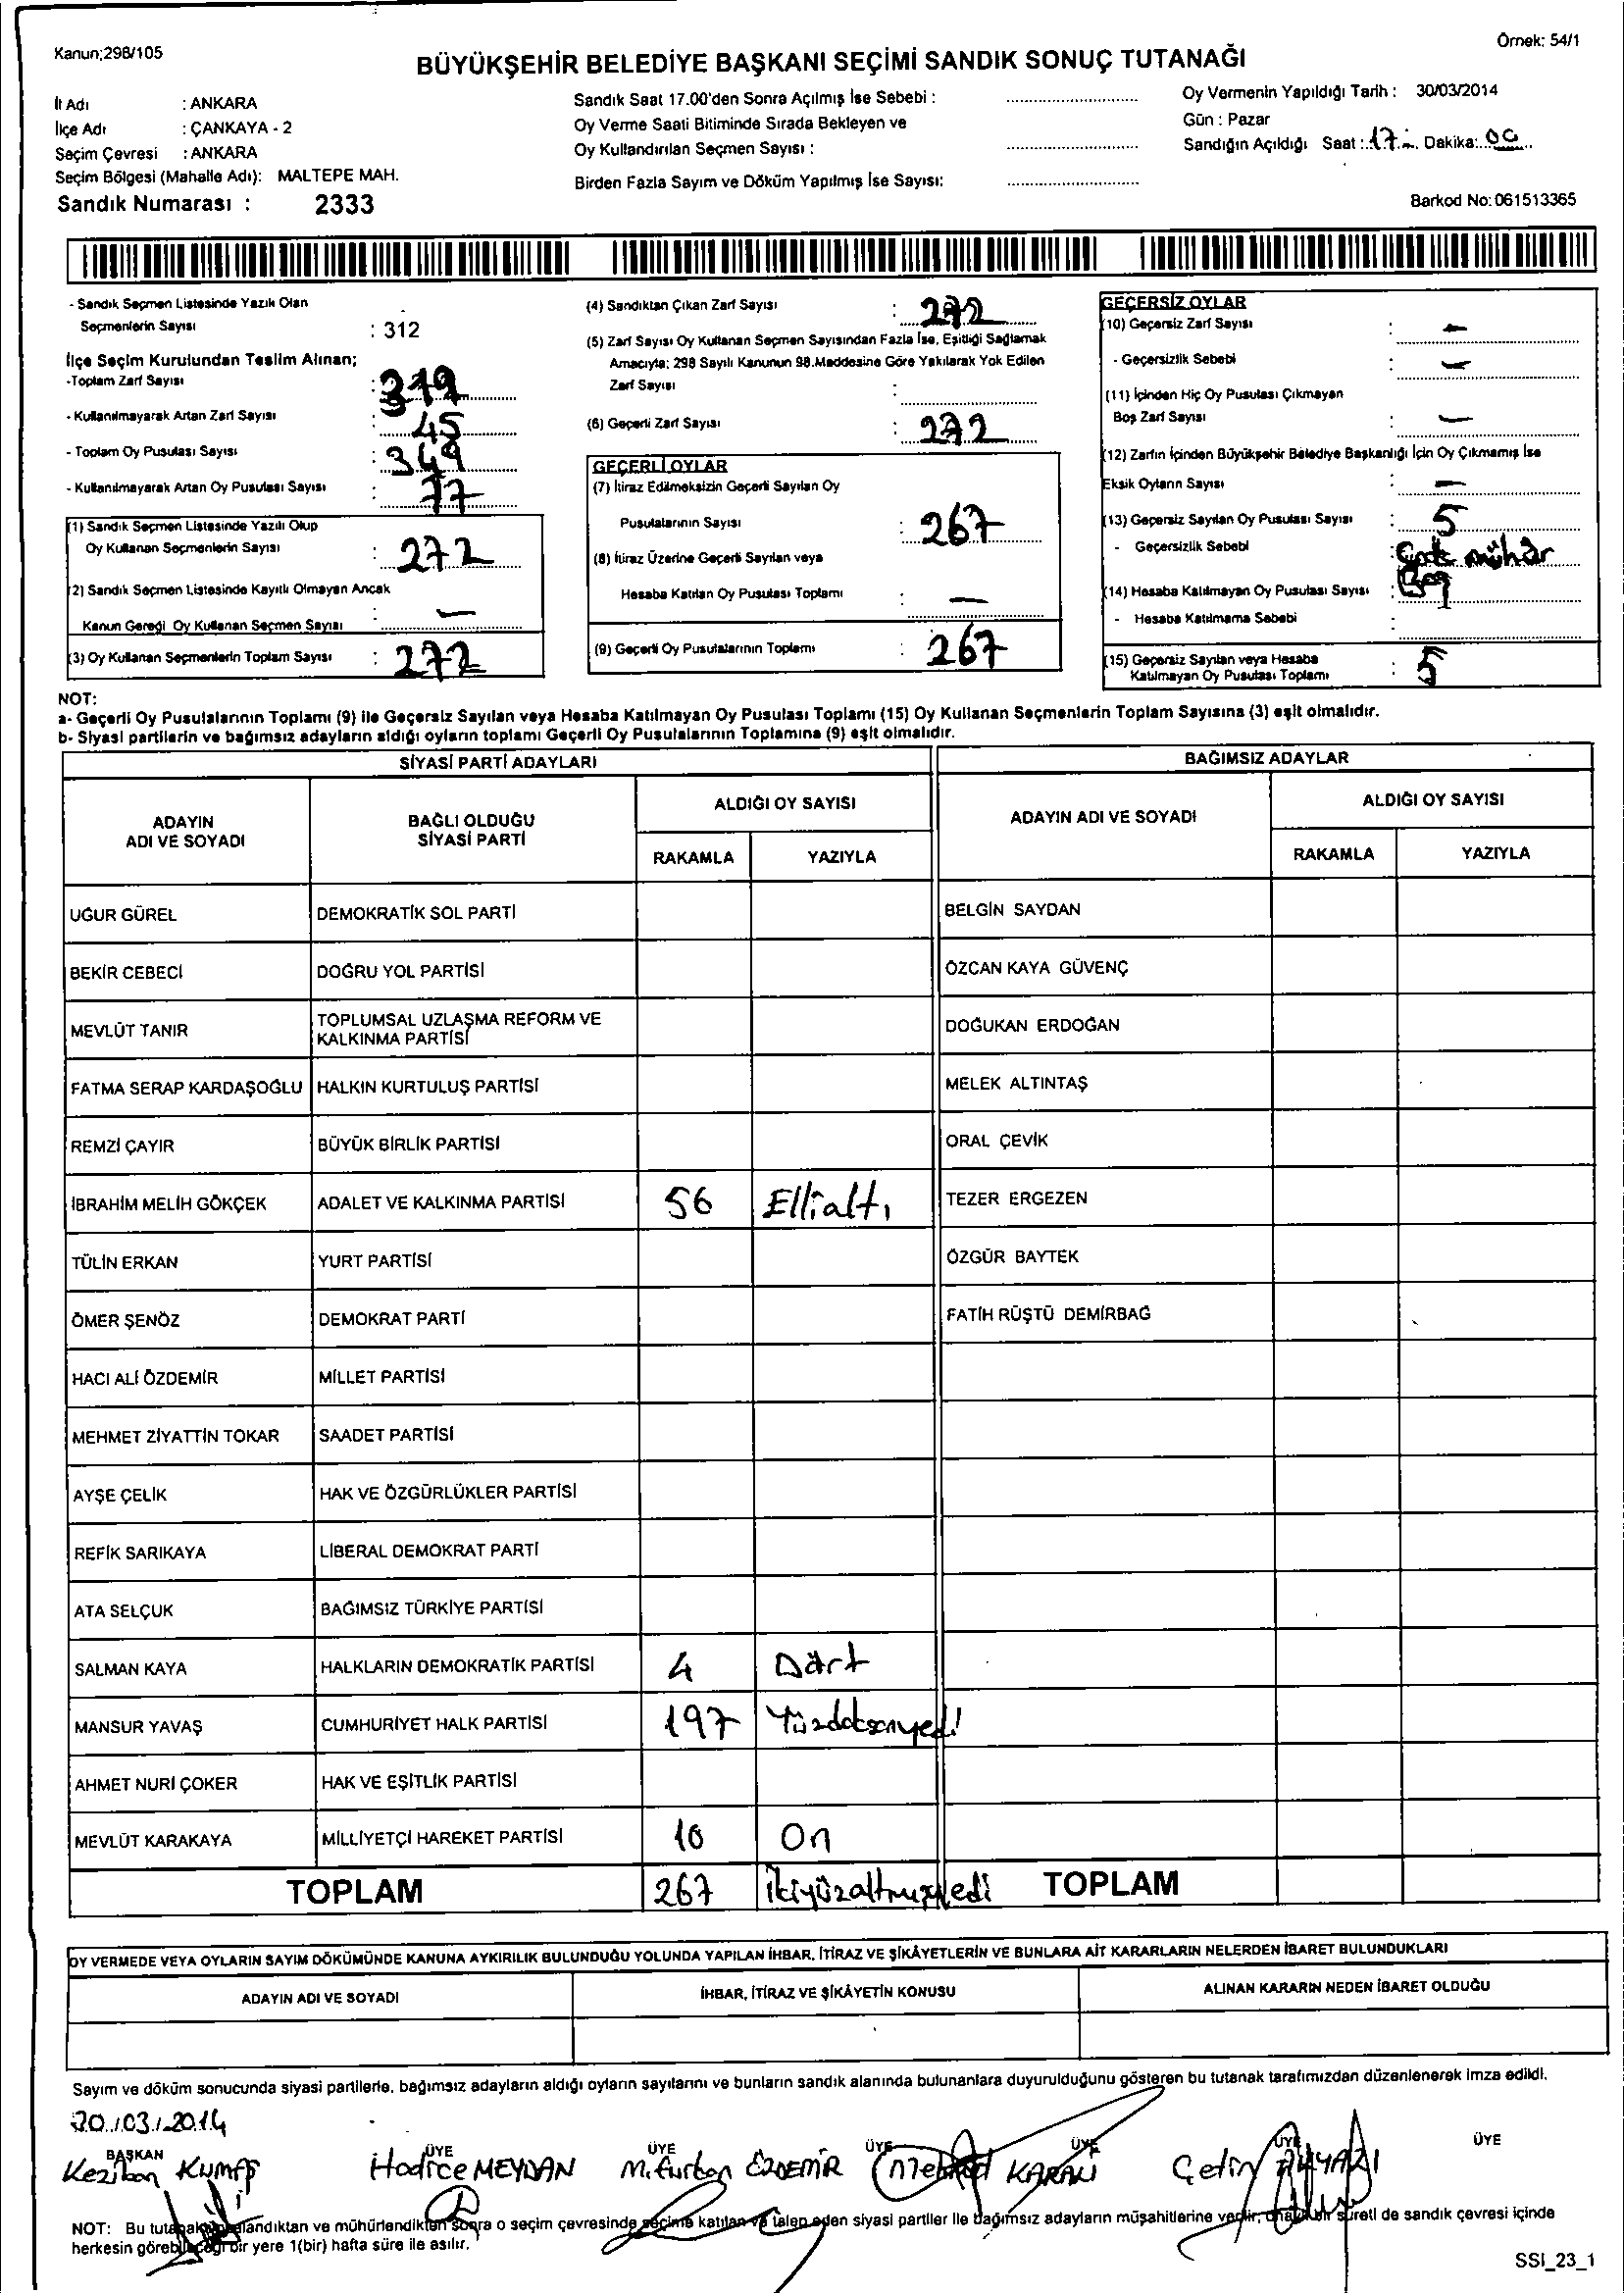 Kanun;298/105
Örnek: 54/1
BÜYÜKŞEHİR BELEDİYE BAŞKANI SEÇİMİ SANDIK SONUÇ TUTANAĞI
İl Adı : ANKARA
İlçe Adı : ÇANKAYA - 2
Seçim Çevresi : ANKARA
Seçim Bölgesi (Mahalle Adı): MALTEPE MAH.
Sandık Numarası : 2333
Sandık Saat 17.00'den Sonra Açılmış İse Sebebi :
Oy Verme Saati Bitiminde Sırada Bekleyen ve
Oy Kullandırılan Seçmen Sayısı :
Birden Fazla Sayım ve Döküm Yapılmış İse Sayısı:
Oy Vermenin Yapıldığı Tarih : 30/03/2014
Gün : Pazar
Sandığın Açıldığı Saat : 17 Dakika: 00
Barkod No: 061513365
- Sandık Seçmen Listesinde Yazılı Olan
Seçmenlerin Sayısı : 312
İlçe Seçim Kurulundan Teslim Alınan;
-Toplam Zarf Sayısı :
- Kullanılmayarak Artan Zarf Sayısı : 45
- Toplam Oy Pusulası Sayısı : 349
- Kullanılmayarak Artan Oy Pusulası Sayısı : 77
(1) Sandık Seçmen Listesinde Yazılı Olup
Oy Kullanan Seçmenlerin Sayısı : 272
(2) Sandık Seçmen Listesinde Kayıtlı Olmayan Ancak
Kanun Gereği Oy Kullanan Seçmen Sayısı : —
(3) Oy Kullanan Seçmenlerin Toplam Sayısı : 272
(4) Sandıktan Çıkan Zarf Sayısı : 272
(5) Zarf Sayısı Oy Kullanan Seçmen Sayısından Fazla İse, Eşitliği Sağlamak
Amacıyla; 298 Sayılı Kanunun 98.Maddesine Göre Yakılarak Yok Edilen
Zarf Sayısı :
(6) Geçerli Zarf Sayısı : 272
GEÇERLİ OYLAR
(7) İtiraz Edilmeksizin Geçerli Sayılan Oy
Pusulalarının Sayısı : 267
(8) İtiraz Üzerine Geçerli Sayılan veya
Hesaba Katılan Oy Pusulası Toplamı : —
(9) Geçerli Oy Pusulalarının Toplamı : 267
GEÇERSİZ OYLAR
(10) Geçersiz Zarf Sayısı : —
- Geçersizlik Sebebi : —
(11) İçinden Hiç Oy Pusulası Çıkmayan
Boş Zarf Sayısı : —
(12) Zarfın İçinden Büyükşehir Belediye Başkanlığı İçin Oy Çıkmamış İse
Eksik Oyların Sayısı : —
(13) Geçersiz Sayılan Oy Pusulası Sayısı : 5
- Geçersizlik Sebebi : Çok mühür
(14) Hesaba Katılmayan Oy Pusulası Sayısı : Boş
- Hesaba Katılmama Sebebi :
(15) Geçersiz Sayılan veya Hesaba
Katılmayan Oy Pusulası Toplamı : 5
NOT:
a- Geçerli Oy Pusulalarının Toplamı (9) ile Geçersiz Sayılan veya Hesaba Katılmayan Oy Pusulası Toplamı (15) Oy Kullanan Seçmenlerin Toplam Sayısına (3) eşit olmalıdır.
b- Siyasi partilerin ve bağımsız adayların aldığı oyların toplamı Geçerli Oy Pusulalarının Toplamına (9) eşit olmalıdır.
SİYASİ PARTİ ADAYLARI
BAĞIMSIZ ADAYLAR
ADAYIN ADI VE SOYADI
BAĞLI OLDUĞU SİYASİ PARTİ
ALDIĞI OY SAYISI
RAKAMLA YAZIYLA
ADAYIN ADI VE SOYADI
ALDIĞI OY SAYISI
RAKAMLA YAZIYLA
UĞUR GÜREL DEMOKRATİK SOL PARTİ BELGİN SAYDAN
BEKİR CEBECİ DOĞRU YOL PARTİSİ ÖZCAN KAYA GÜVENÇ
MEVLÜT TANIR TOPLUMSAL UZLAŞMA REFORM VE KALKINMA PARTİSİ DOĞUKAN ERDOĞAN
FATMA SERAP KARDAŞOĞLU HALKIN KURTULUŞ PARTİSİ MELEK ALTINTAŞ
REMZİ ÇAYIR BÜYÜK BİRLİK PARTİSİ ORAL ÇEVİK
İBRAHİM MELİH GÖKÇEK ADALET VE KALKINMA PARTİSİ 56 Ellialtı TEZER ERGEZEN
TÜLİN ERKAN YURT PARTİSİ ÖZGÜR BAYTEK
ÖMER ŞENÖZ DEMOKRAT PARTİ FATİH RÜŞTÜ DEMİRBAĞ
HACI ALİ ÖZDEMİR MİLLET PARTİSİ
MEHMET ZİYATTİN TOKAR SAADET PARTİSİ
AYŞE ÇELİK HAK VE ÖZGÜRLÜKLER PARTİSİ
REFİK SARIKAYA LİBERAL DEMOKRAT PARTİ
ATA SELÇUK BAĞIMSIZ TÜRKİYE PARTİSİ
SALMAN KAYA HALKLARIN DEMOKRATİK PARTİSİ 4 Dört
MANSUR YAVAŞ CUMHURİYET HALK PARTİSİ 197 Yüzdoksanyedi
AHMET NURİ ÇOKER HAK VE EŞİTLİK PARTİSİ
MEVLÜT KARAKAYA MİLLİYETÇİ HAREKET PARTİSİ 10 On
TOPLAM 267 İkiyüzaltmışyedi TOPLAM
OY VERMEDE VEYA OYLARIN SAYIM DÖKÜMÜNDE KANUNA AYKIRILIK BULUNDUĞU YOLUNDA YAPILAN İHBAR, İTİRAZ VE ŞİKÂYETLERİN VE BUNLARA AİT KARARLARIN NELERDEN İBARET BULUNDUKLARI
ADAYIN ADI VE SOYADI İHBAR, İTİRAZ VE ŞİKÂYETİN KONUSU ALINAN KARARIN NEDEN İBARET OLDUĞU
Sayım ve döküm sonucunda siyasi partilerle, bağımsız adayların aldığı oyların sayılarını ve bunların sandık alanında bulunanlara duyurulduğunu gösteren bu tutanak tarafımızdan düzenlenerek imza edildi.
30/03/2014
BAŞKAN ÜYE ÜYE ÜYE ÜYE ÜYE ÜYE
Keziban KUMAŞ Hatice MEYDAN M. Furkan ÖZDEMİR Mehmed KARALI Çetin
NOT: Bu tutanak imzalandıktan ve mühürlendikten sonra o seçim çevresinde seçime katılan ve talep eden siyasi partiler ile bağımsız adayların müşahitlerine verilir, onaylı bir sureti de sandık çevresi içinde
herkesin görebileceği bir yere 1(bir) hafta süre ile asılır.
SSI_23_1